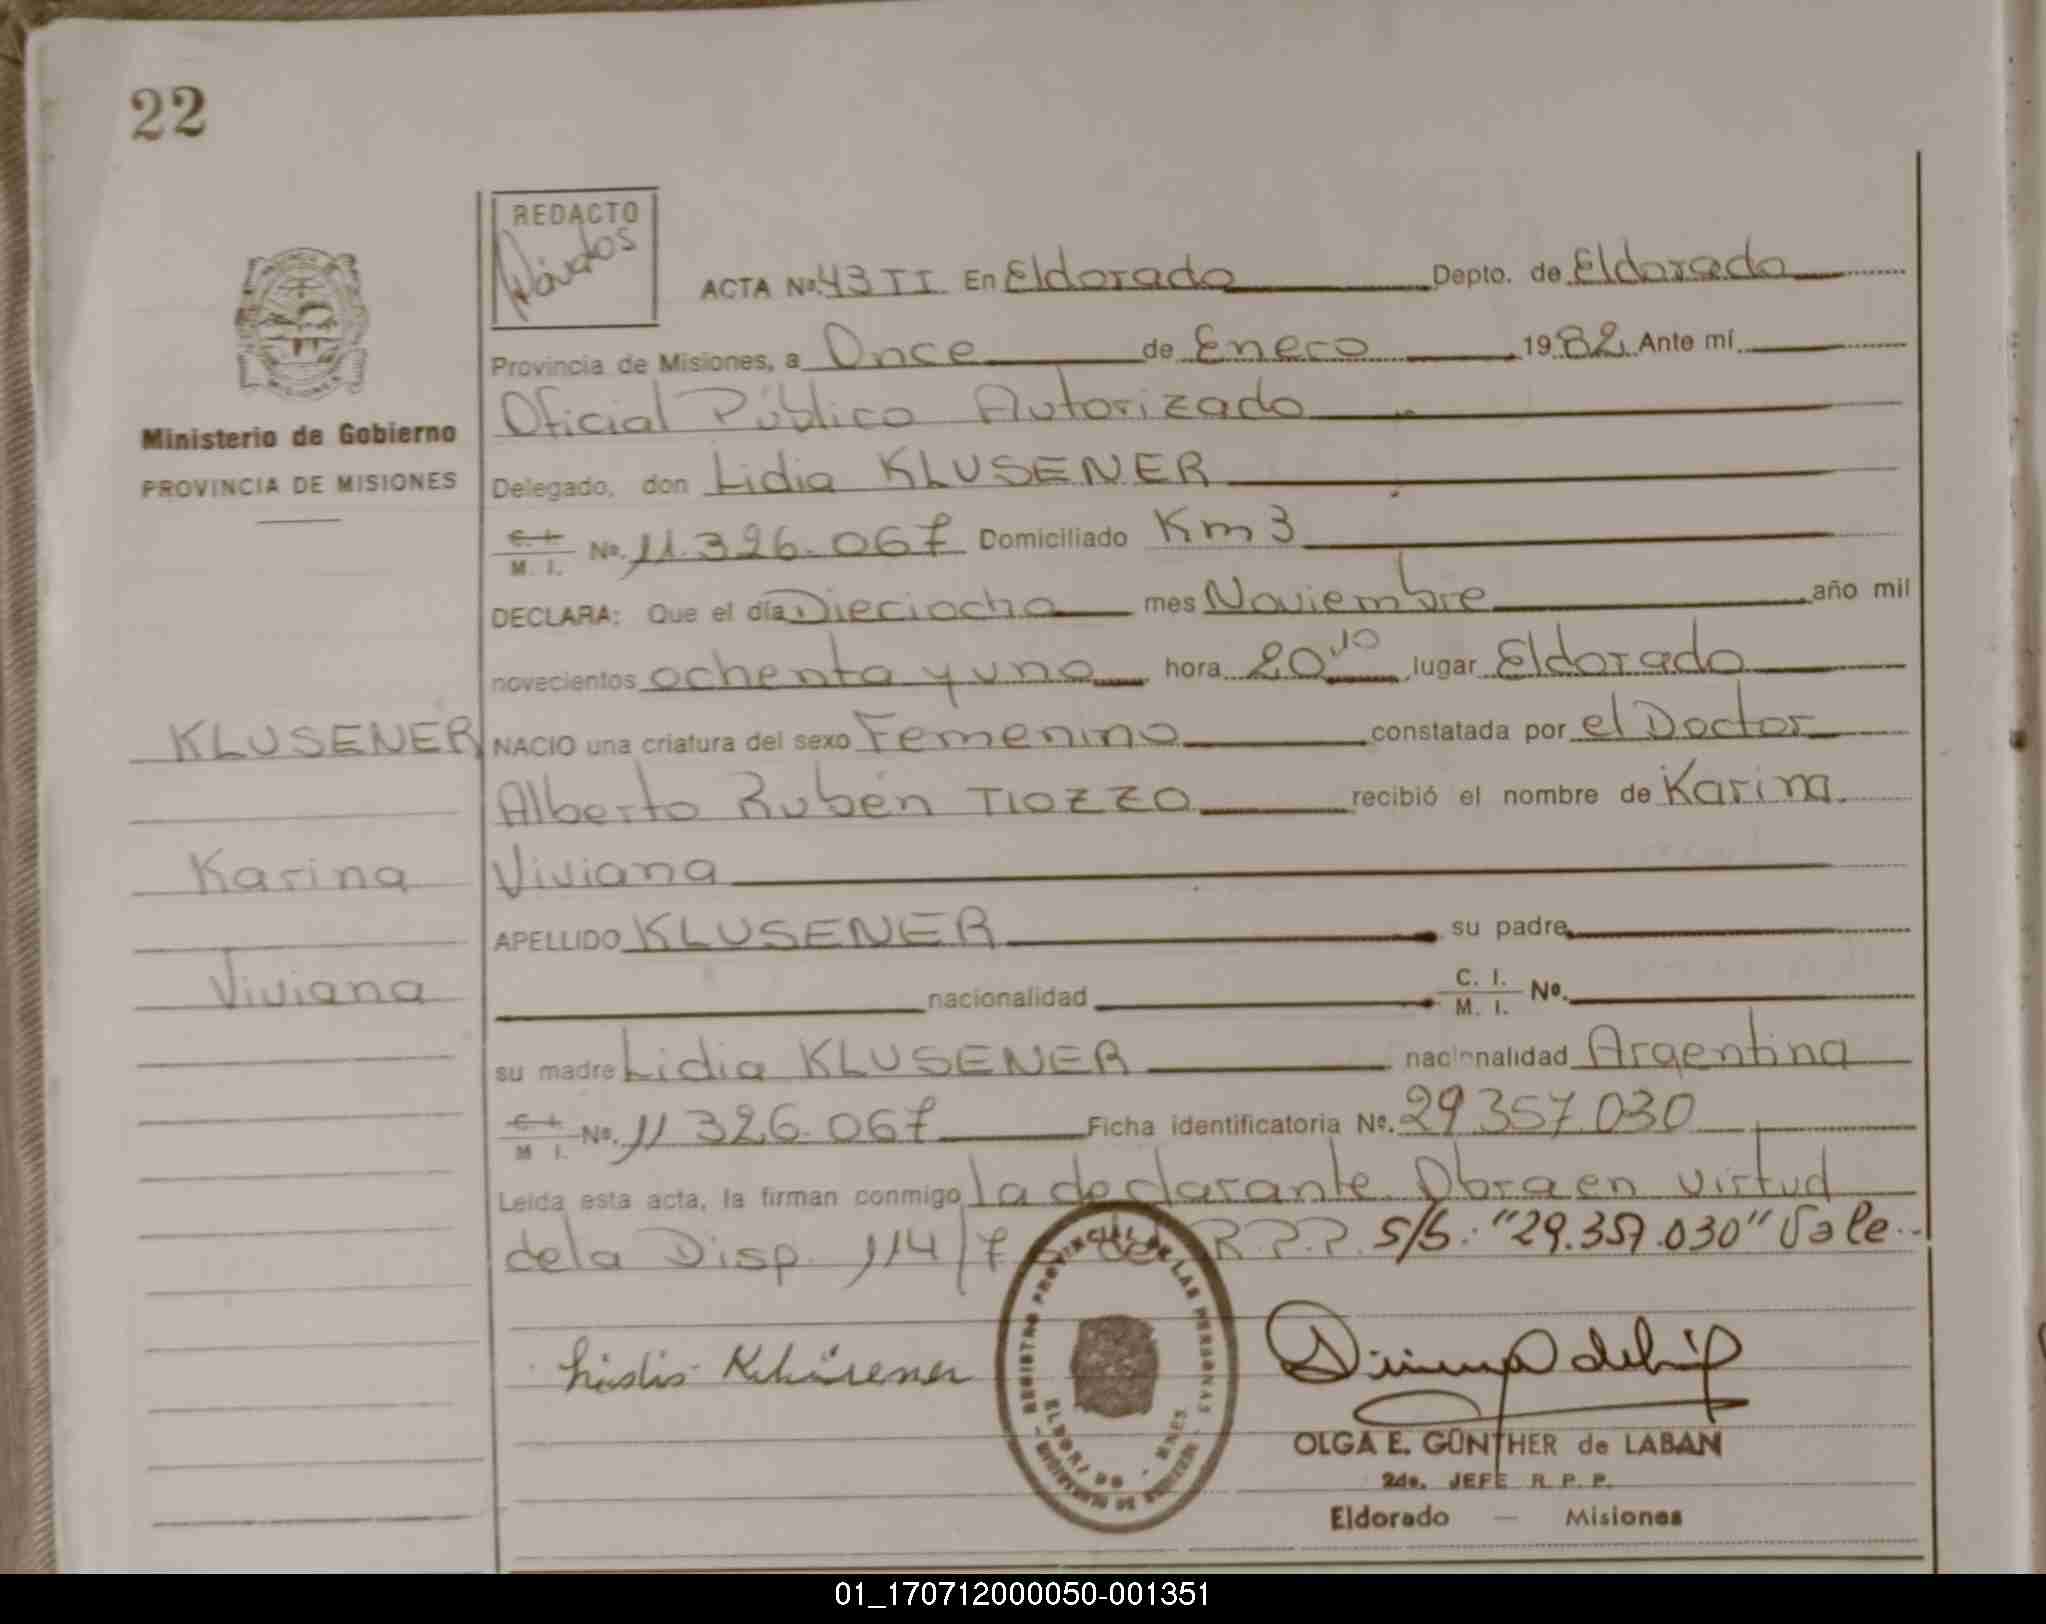 22
REDACTO
ACTA Nº. 43 TI En Eldorado Depto. de Eldorado
Provincia de Misiones, a Once de Enero 1982 Ante mí
Oficial Público Autorizado
Ministerio de Gobierno
PROVINCIA DE MISIONES
Delegado, don Lidia KLUSENER
C. I. / M. I. Nº. 11.326.067 Domiciliado Km 3
DECLARA: Que el día Dieciocho mes Noviembre año mil
novecientos ochenta y uno hora 20,10 lugar Eldorado
KLUSENER
NACIO una criatura del sexo Femenino constatada por el Doctor
Alberto Rubén TIOZZO recibió el nombre de Karina
Karina
Viviana
APELLIDO KLUSENER su padre
Viviana
nacionalidad C. I. / M. I. Nº.
su madre Lidia KLUSENER nacionalidad Argentina
C. I. / M. I. Nº. 11 326.067 Ficha identificatoria Nº. 29.357.030
Leida esta acta, la firman conmigo la declarante. Obra en virtud
de la Disp. 114/7 del R.P.P. s/b. "29.357.030" Vale
REGISTRO PROVINCIAL DE LAS PERSONAS
ELDORADO
Lidia Klüsener
OLGA E. GÜNTHER de LABAN
2do. JEFE R. P. P.
Eldorado — Misiones
01_170712000050-001351